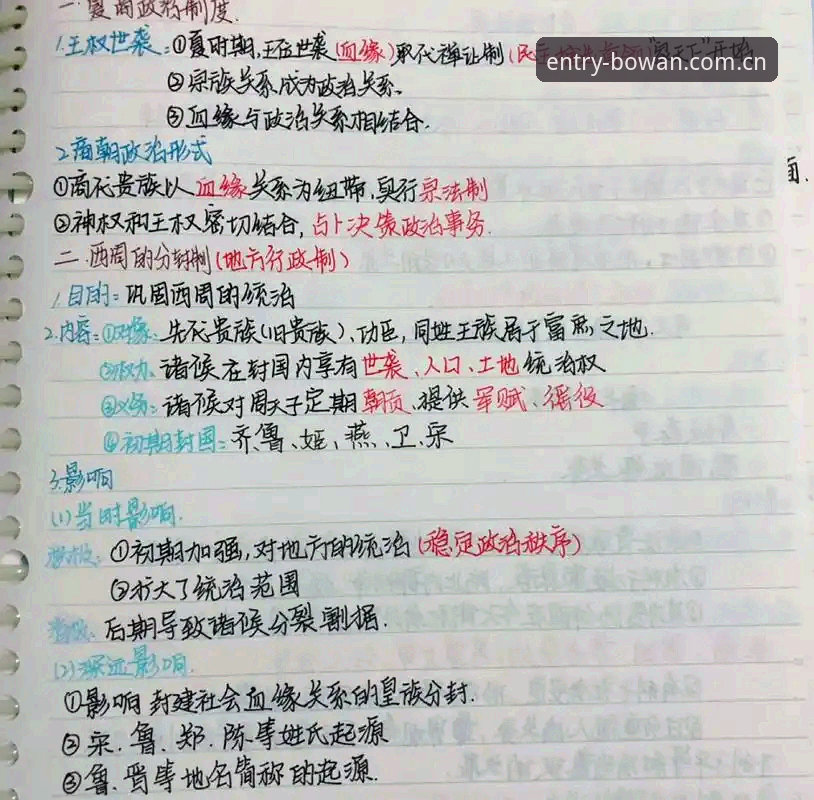 一.夏商政治制度.
1.王权世袭:①夏时期,王位世袭(血缘)取代禅让制(民主 "家天下"开始
entry-bowan.com.cn
②宗族关系成为政治关系.
③血缘与政治关系相结合.
2.商朝政治形式
①商代贵族以血缘关系为纽带,实行宗法制
②神权和王权密切结合,占卜决策政治事务.
二.西周的分封制(地方行政制)
1.目的:巩固西周的统治
2.内容:①对象:先代贵族(旧贵族)、功臣,同姓王族居于富熙之地.
②权力:诸候在封国内享有世袭、人口、土地统治权
③义务:诸候对周天子定期朝贡、提供军赋、徭役
④初期封国:齐、鲁、姬、燕、卫、宋
3.影响
(1)当时影响.
积极:①初期加强,对地方的统治(稳定政治秩序)
②扩大了统治范围
消极:后期导致诸候分裂割据.
(2)深远影响.
①影响封建社会血缘关系的皇族分封.
②宋.鲁.郑.陈等姓氏起源
③鲁.晋等地名简称的起源.